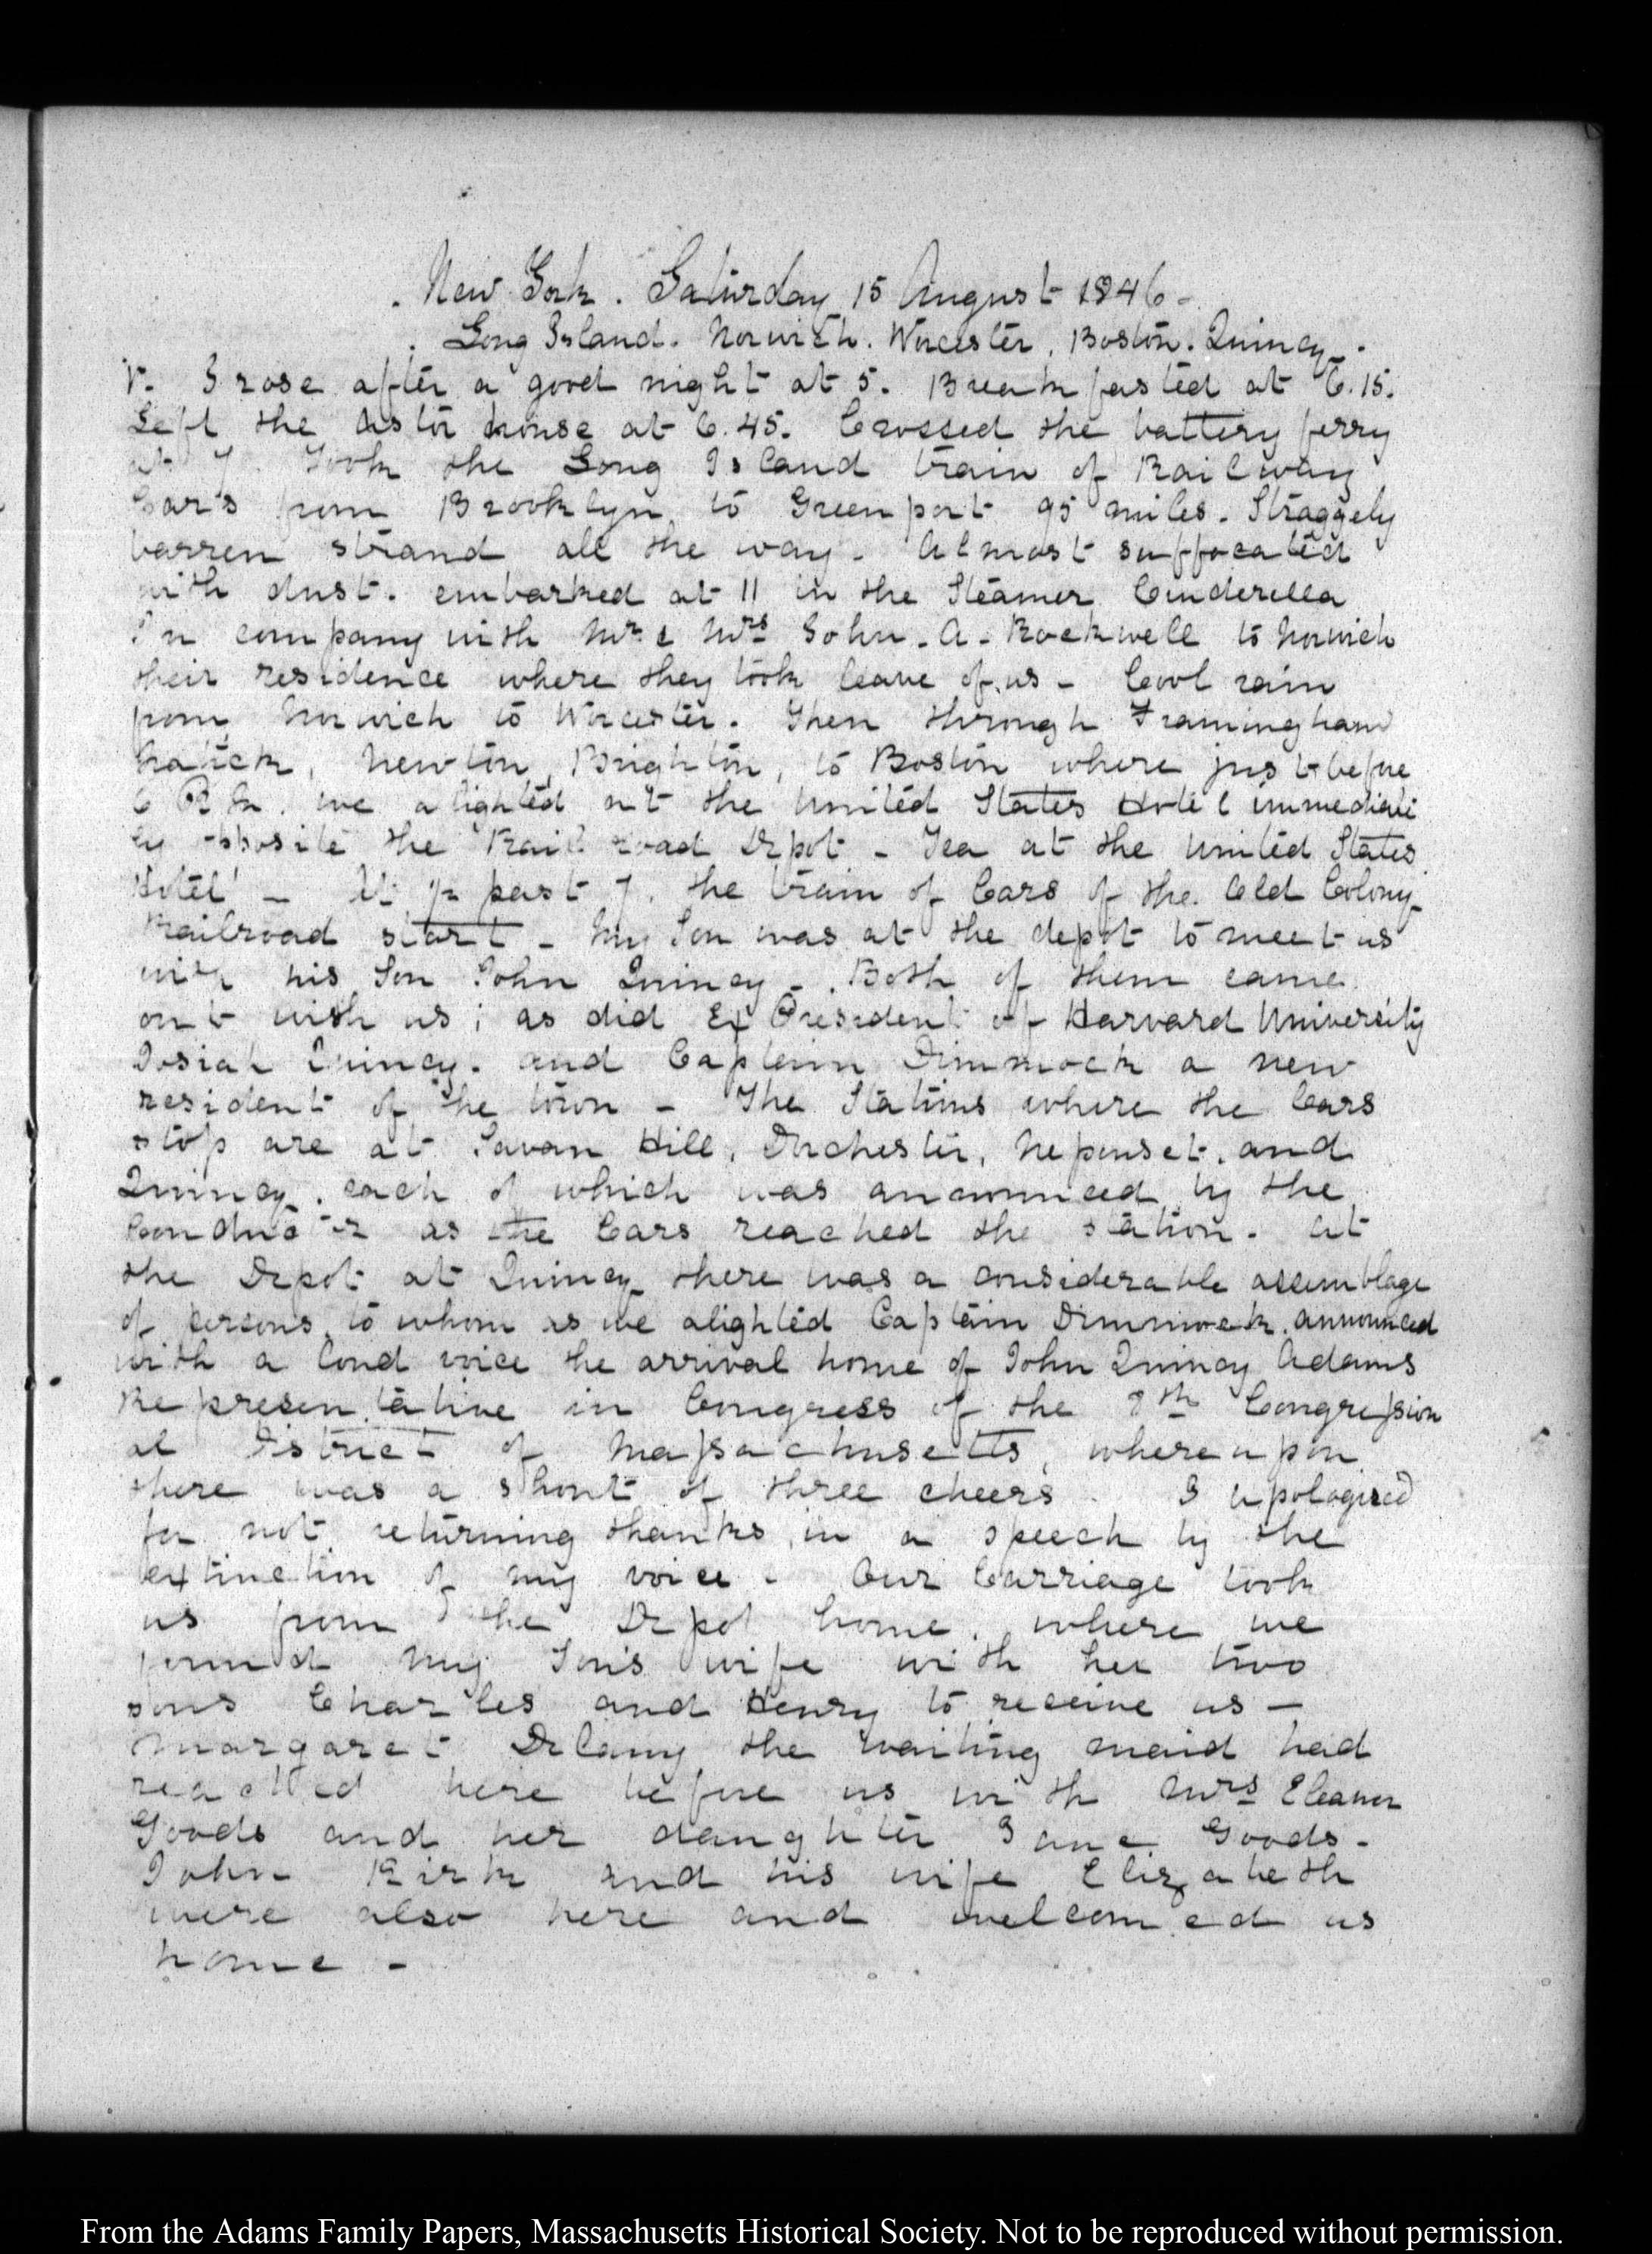 New York. Saturday 15 August 1846-
Long Island. Norwich. Worcester. Boston. Quincy.
V. I rose after a good night at 5. Breakfasted at 6.15.
Left the Astor house at 6.45. Crossed the battery ferry
at 7. Took the Long Island train of Railway
Cars from Brooklyn to Greenport 95 miles. Straggely
barren strand all the way. Almost suffocated
with dust. embarked at 11 in the Steamer Cinderella
In company with Mr. & Mrs John. A. Rockwell to Norwich
their residence where they took leave of us - Cool rain
from Norwich to Worcester. Then through Framingham
Natick, Newton, Brighton, to Boston where just before
6 P.M. we alighted at the United States Hotel immediate
ly opposite the Rail road Depot - Tea at the United States
Hotel - At 1/2 past 7. the train of Cars of the Old Colony
Railroad start - My Son was at the depot to meet us
with his Son John Quincy - Both of them came
out with us; as did Ex President of Harvard University
Josiah Quincy. and Captain Dimmock a new
resident of the town - The Stations where the Cars
stop are at Savan Hill, Dorchester, Neponset, and
Quincy. each of which was announced by the
Conductor as the Cars reached the station. At
the Depot at Quincy there was a considerable assemblage
of persons to whom as we alighted Captain Dimmock announced
with a loud voice the arrival home of John Quincy Adams
Representative in Congress of the 8th Congression
al District of Massachusetts, whereupon
there was a shout of three cheers. I apologized
for not returning thanks in a speech by the
extinction of my voice - Our Carriage took
us from the Depot home, where we
found my Son's wife with her two
sons Charles and Henry to receive us -
Margaret Delany the waiting maid had
reached here before us with Mrs Eleanor
Goods and her daughter Jane Goods.
John Kirk and his wife Elizabeth
were also here and welcomed us
home -
From the Adams Family Papers, Massachusetts Historical Society. Not to be reproduced without permission.